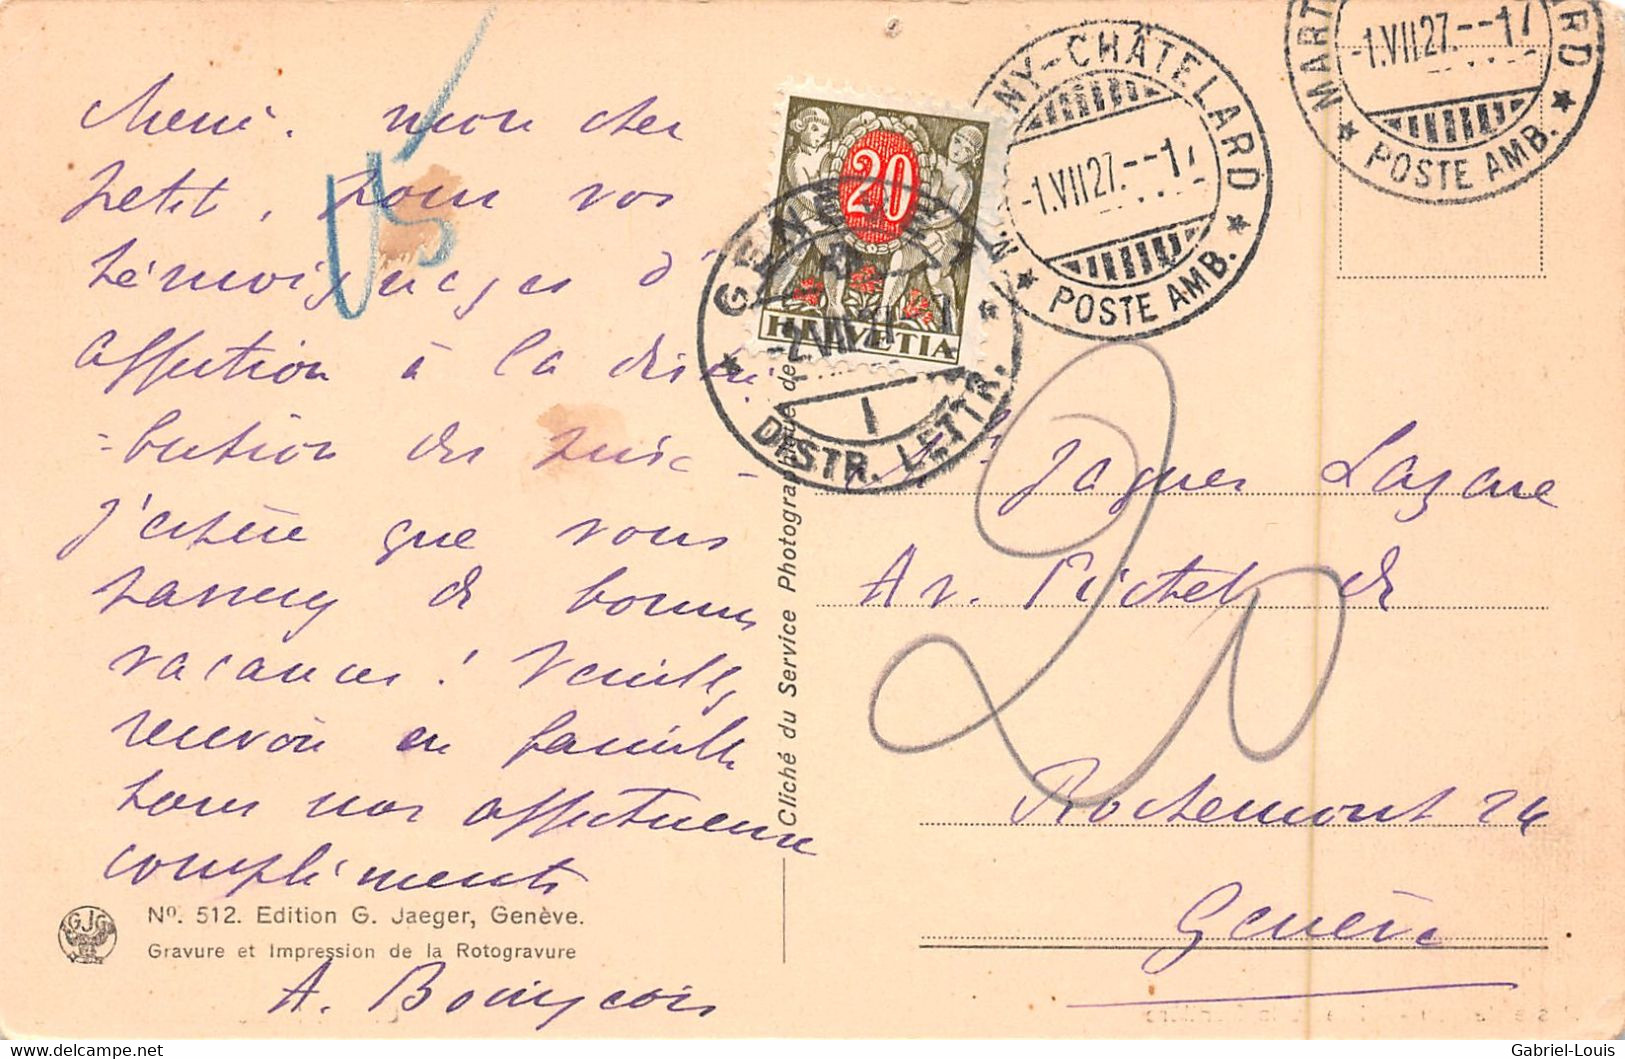 Merci, mon cher
petit, pour vos
témoignages d'
affection à la distri
=bution des prix -
J'espère que vous
passerez de bonnes
vacances! Veuillez
recevoir en famille
tous nos affectueux
compliments
Nº. 512. Edition G. Jaeger, Genève.
Gravure et Impression de la Rotogravure
GJG
A. Bourgeois
Cliché du Service Photographique de
20
HELVETIA
GENÈVE 1
-2.VII.27.--1
I
DISTR. LETTR.
NY-CHÂTELARD
-1.VII27.--17
POSTE AMB.
MART ARD
-1.VII27.--17
POSTE AMB.
20
Jaques Lazare
Av. Pictet de
Rochemont 24
Genève
delcampe.net
Gabriel-Louis